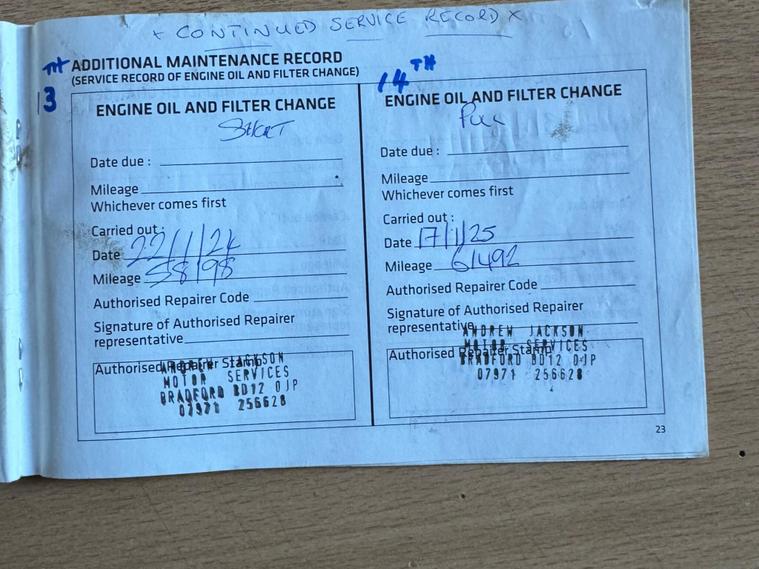 * CONTINUED SERVICE RECORD *
13TH
ADDITIONAL MAINTENANCE RECORD
(SERVICE RECORD OF ENGINE OIL AND FILTER CHANGE)
ENGINE OIL AND FILTER CHANGE
SHORT
Date due :
Mileage
Whichever comes first
Carried out :
Date 22/1/24
Mileage 58198
Authorised Repairer Code
Signature of Authorised Repairer
representative
Authorised Repairer Stamp
ANDREW JACKSON
MOTOR SERVICES
BRADFORD BD12 0JP
07971 256628
14TH
ENGINE OIL AND FILTER CHANGE
Full
Date due :
Mileage
Whichever comes first
Carried out :
Date 17/1/25
Mileage 61492
Authorised Repairer Code
Signature of Authorised Repairer
representative
Authorised Repairer Stamp
ANDREW JACKSON
MOTOR SERVICES
BRADFORD BD12 0JP
07971 256628
23